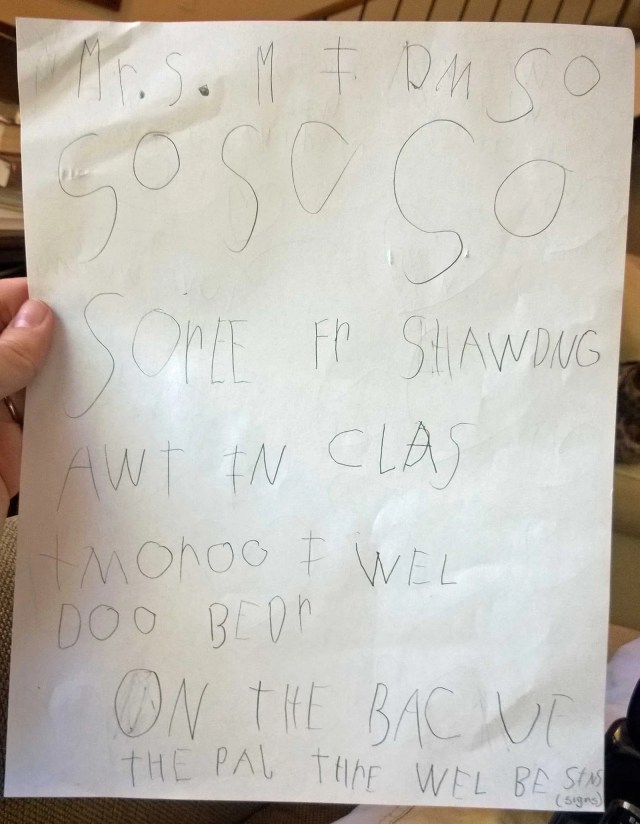 Mr.s. M I DM SO
SO SO SO
SOrEE Fr SHAWDNG
AWT IN CLAS
tMOrOO I WEL
DOO BEDr
ON THE BAC UF
THE PAL THrE WEL BE SINS
(signs)